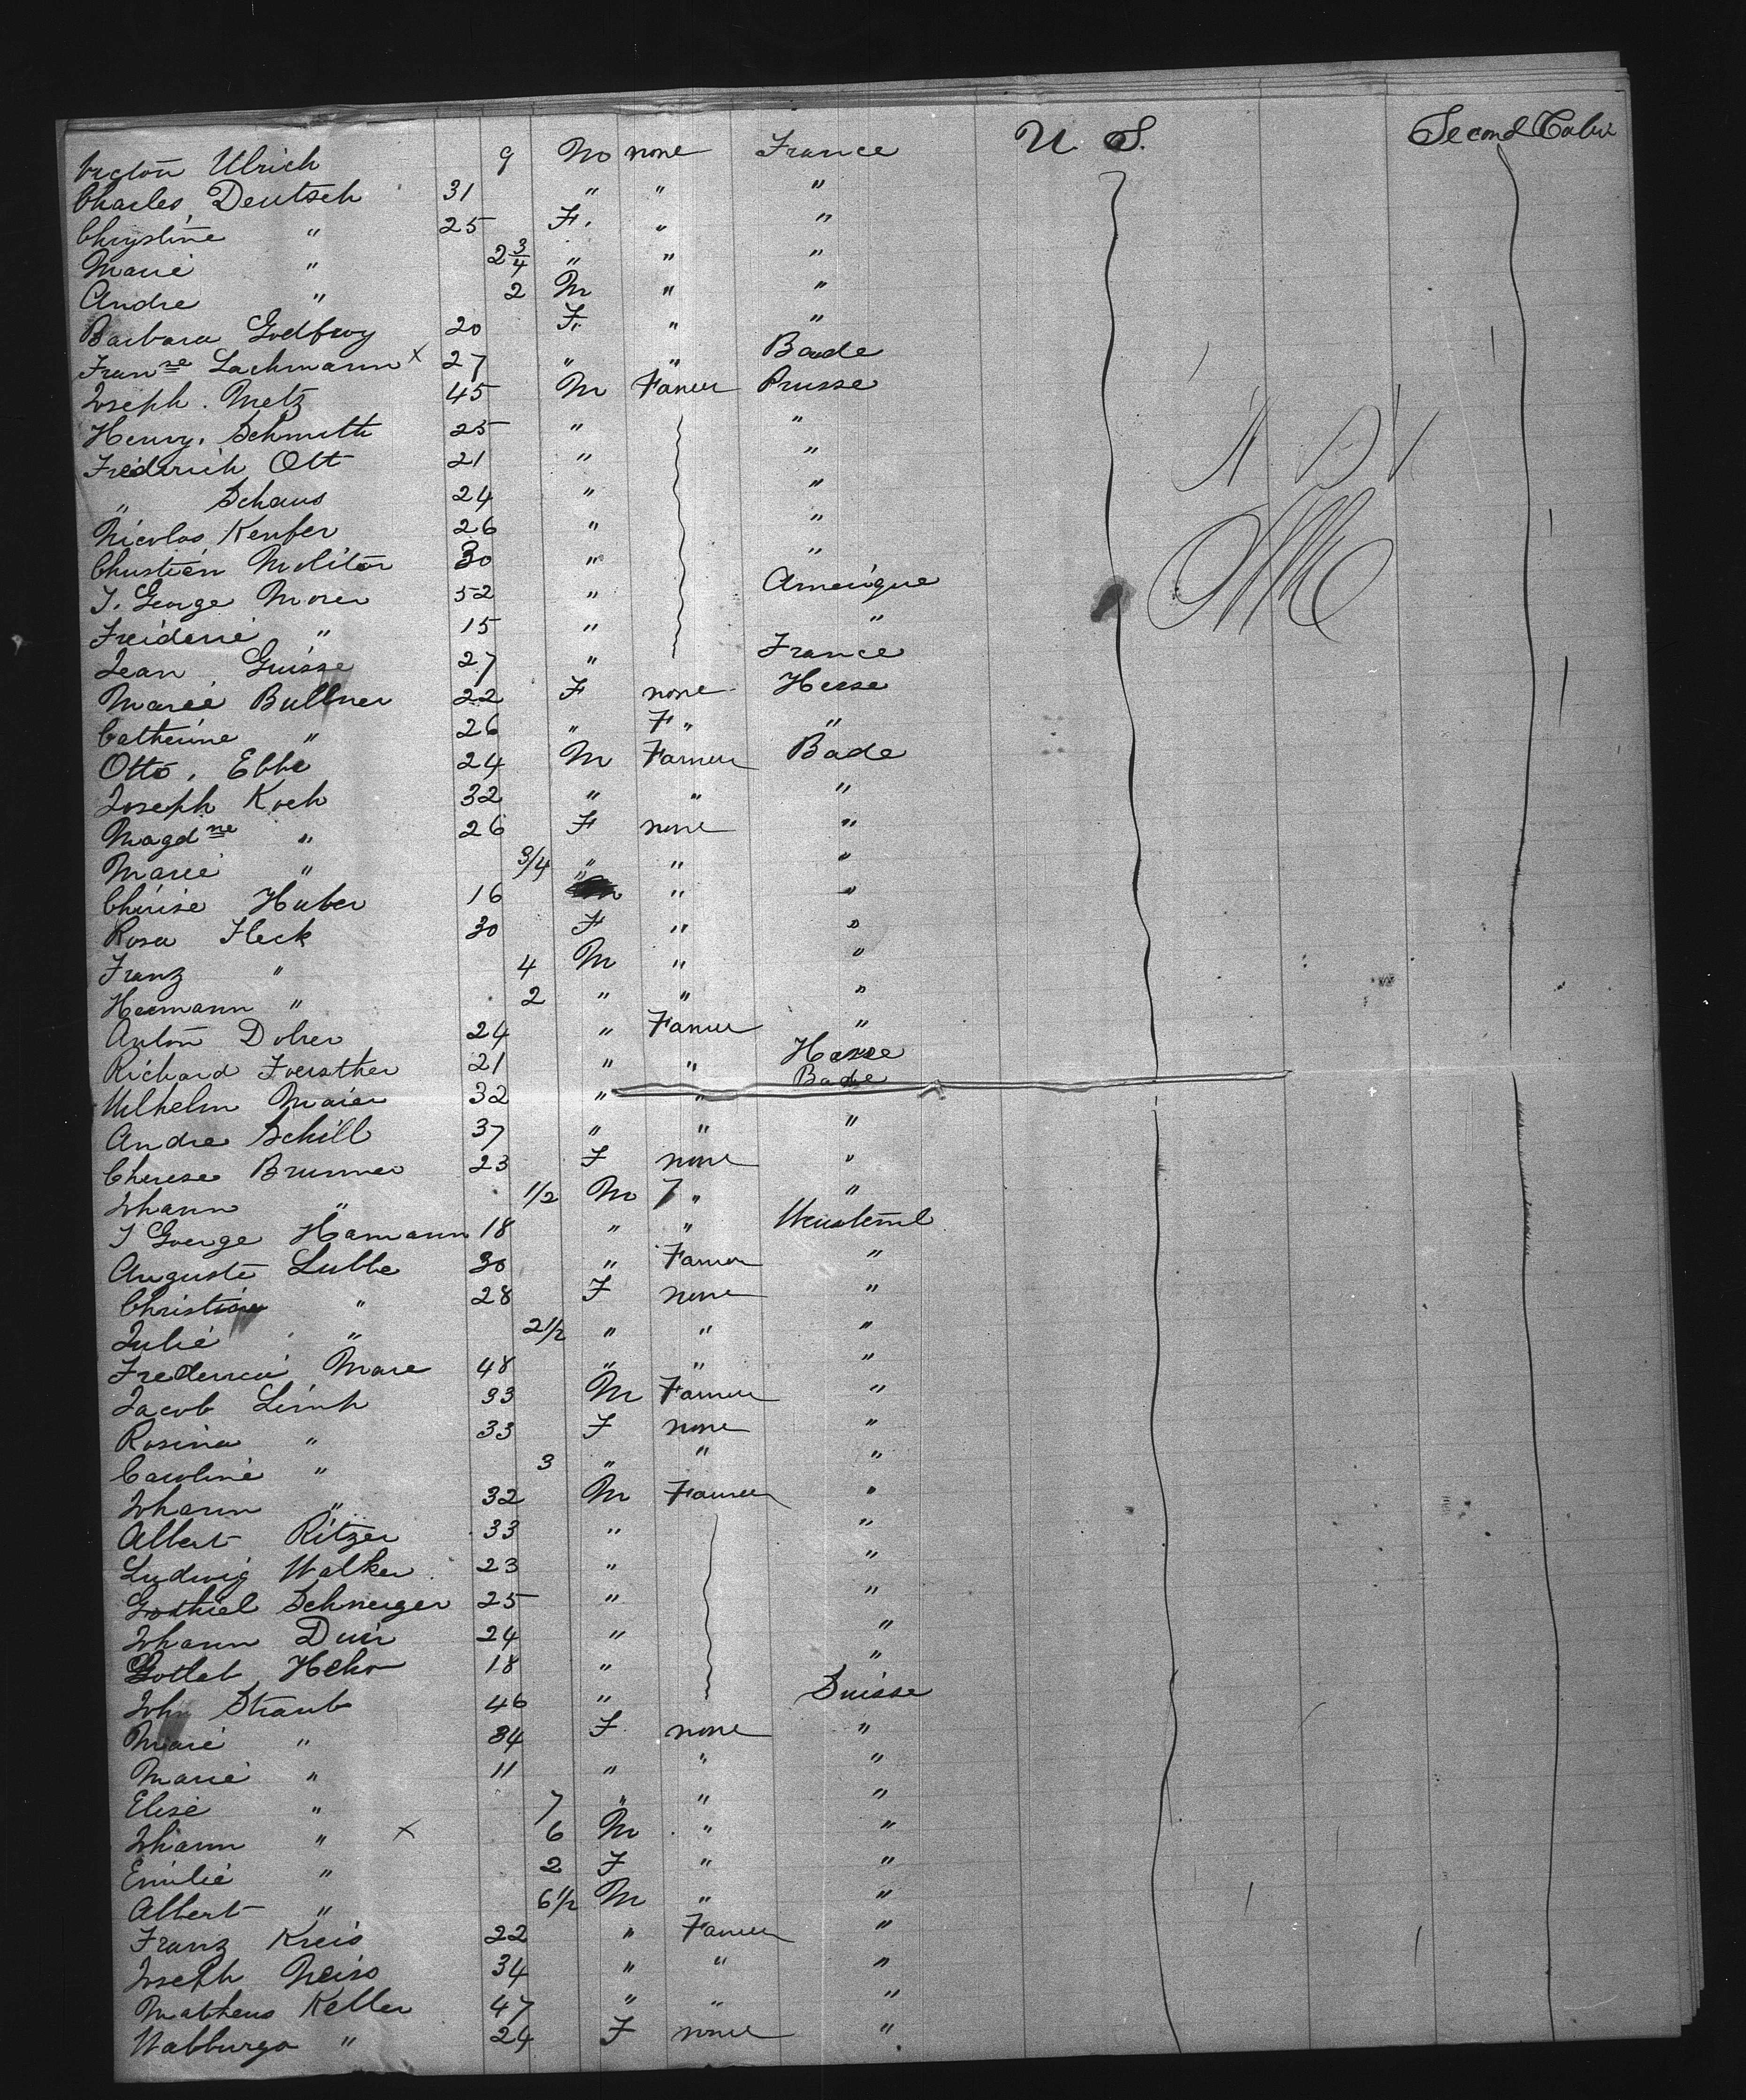 Victon Ulrich 9 M none France U. S. Second Cabin
Charles Deutsch 31 " " "
Chrystine " 25 F. " "
Marie " 2 3/4 " " "
Andre " 2 M " "
Barbara Godfroy 20 F. " "
Fran ne Lachmann x 27 " " Bade
Joseph. Metz 45 M Farmer Prusse
Henry. Schmith 25 " "
Frédérich Ott 21 " "
" Schaus 24 " "
Nicolas Kenfer 26 " "
Christien Molitor 30 " "
J. George Morer 52 " Amerique
Freiderie " 15 " "
Jean Guisse 27 " France
Marie Bullner 22 F none Hesse
Catherine " 26 " F " "
Otto. Ebbe 24 M Farmer Bade
Joseph Koch 32 " " "
Magd ne " 26 F none "
Marie " 3/4 " " "
Thérise Huber 16 " " "
Rosa Fleck 30 F " "
Franz " 4 M " "
Hermann " 2 " " "
Anton Dolrer 24 " Farmer "
Richard Foersther 21 " " Hesse
Wilhelm Maier 32 " " Bade
Andre Schill 37 " " "
Therese Brunner 23 F none "
Johann " 1/2 M " "
J George Hamann 18 " " Wurtemb
Auguste Lubbe 30 " Farmer "
Christine " 28 F none "
Julie " 2 1/2 " " "
Frederica Mare 48 " " "
Jacob Linnh 33 M Farmer "
Rosina " 33 F none "
Caroline " 3 " " "
Johann " 32 M Farmer "
Albert Ritzer 33 " "
Ludwig Walker 23 " "
Gothiel Schneiger 25 " "
Johann Duir 24 " "
Gotlab Hehr 18 " "
John Straub 46 " Suisse
Marie " 34 F none "
Marie " 11 " " "
Elise " 7 " " "
Johann " x 6 M " "
Emilie " 2 F " "
Albert " 6 1/2 M " "
Franz Kreis 22 " Farmer "
Joseph Neiss 34 " " "
Matheus Keller 47 " " "
Walburga " 24 F none "